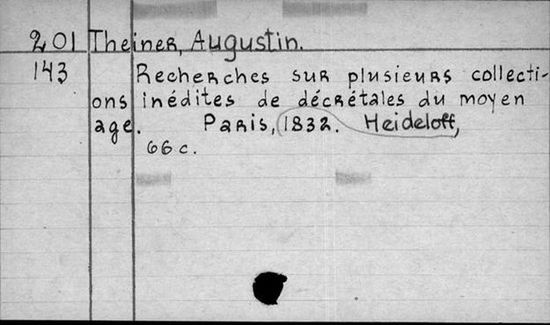 201 Theiner, Augustin.
143 Recherches sur plusieurs collecti-
ons inédites de décrétales du moyen
age. Paris, 1832. Heideloff,
66 c.